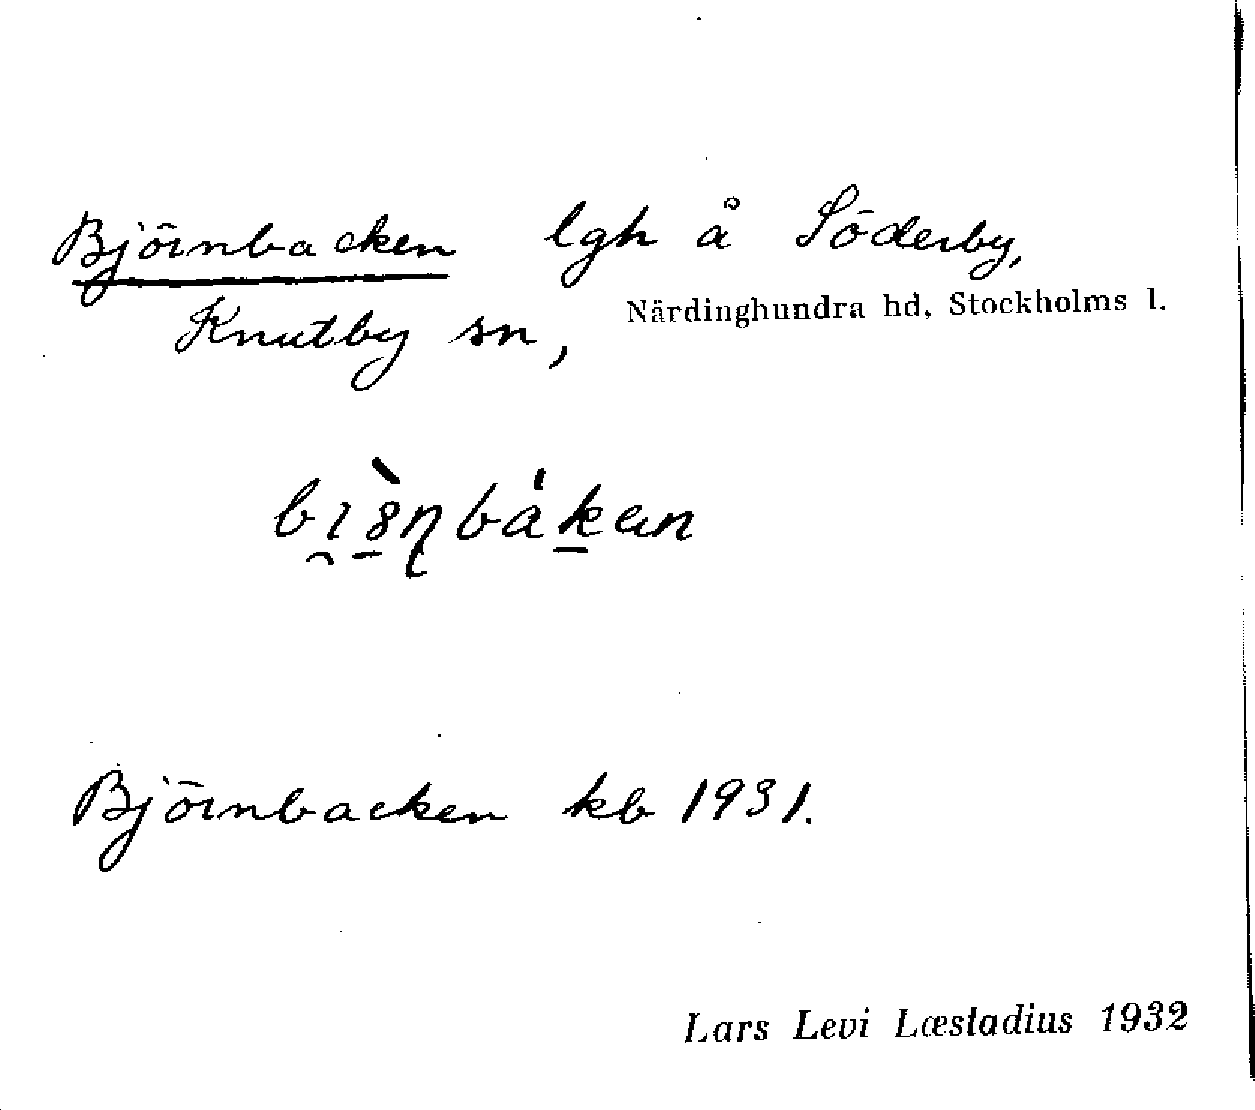 Björnbacken lgh å Söderby,
Knutby sn, Närdinghundra hd, Stockholms l.
Björnbacken kb 1931.
Lars Levi Læstadius 1932